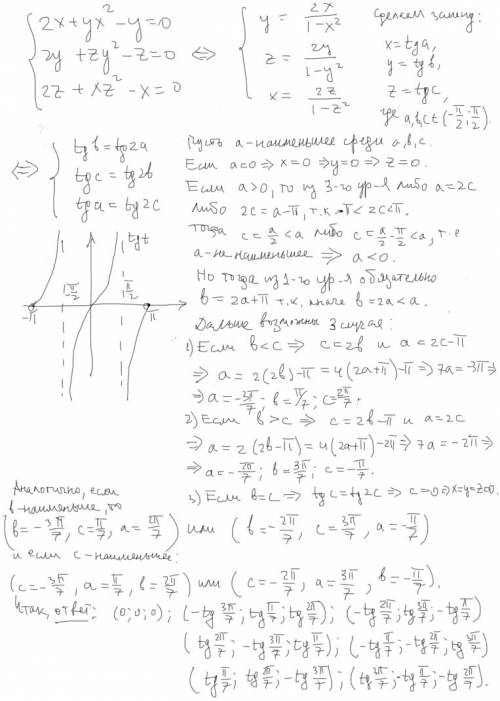 2x+yx²-y=0
2y+zy²-z=0
2z+xz²-x=0
⇔
y = 2x/(1-x²)
z = 2y/(1-y²)
x = 2z/(1-z²)
сделаем замену:
x=tga,
y=tgb,
z=tgc,
где a,b,c∈(-π/2;π/2)
⇔
tgb=tg2a
tgc=tg2b
tga=tg2c
Пусть a-наименьшее среди a,b,c.
Если a=0⇒x=0⇒y=0⇒z=0.
Если a>0, то из 3-го ур-я либо a=2c
либо 2c=a-π, т.к. -π<2c<π.
Тогда c=a/2<a либо c=a/2-π/2<a, т.е
a-не наименьшее ⇒ a<0.
Но тогда из 1-го ур-я обязательно
b=2a+π т.к. иначе b=2a<a.
Дальше возможны 3 случая:
tgt
-π -π/2 π/2 π
1) Если b<c ⇒ c=2b и a=2c-π
⇒ a=2(2b)-π=4(2a+π)-π⇒7a=-3π⇒
⇒a=-3π/7; b=π/7; c=2π/7.
2) Если b>c ⇒ c=2b-π и a=2c
⇒a=2(2b-π)=4(2a+π)-2π⇒7a=-2π⇒
⇒a=-2π/7; b=3π/7; c=-π/7.
3) Если b=c ⇒ tgc=tg2c ⇒ c=0⇒x=y=z=0.
Аналогично, если
b-наименьшее, то
(b=-3π/7, c=π/7, a=2π/7) или (b=-2π/7, c=3π/7, a=-π/7)
и если c-наименьшее:
(c=-3π/7, a=π/7, b=2π/7) или (c=-2π/7, a=3π/7, b=-π/7).
Итак, ответ: (0;0;0); (-tg3π/7; tgπ/7; tg2π/7); (-tg2π/7; tg3π/7; -tgπ/7)
(tg2π/7; -tg3π/7; tgπ/7); (-tgπ/7; -tg2π/7; tg3π/7)
(tgπ/7; tg2π/7; -tg3π/7); (tg3π/7; -tgπ/7; -tg2π/7).